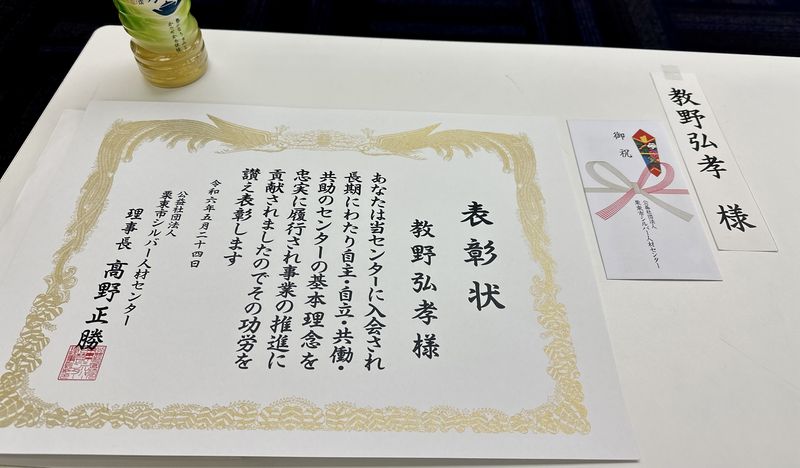 表彰状
教野弘孝様
あなたは当センターに入会され
長期にわたり自主・自立・共働・
共助のセンターの基本理念を
忠実に履行され事業の推進に
貢献されましたのでその功労を
讃え表彰します
令和六年五月二十四日
公益社団法人
栗東市シルバー人材センター
理事長 髙野正勝
御祝
公益社団法人
栗東市シルバー人材センター
教野弘孝 様